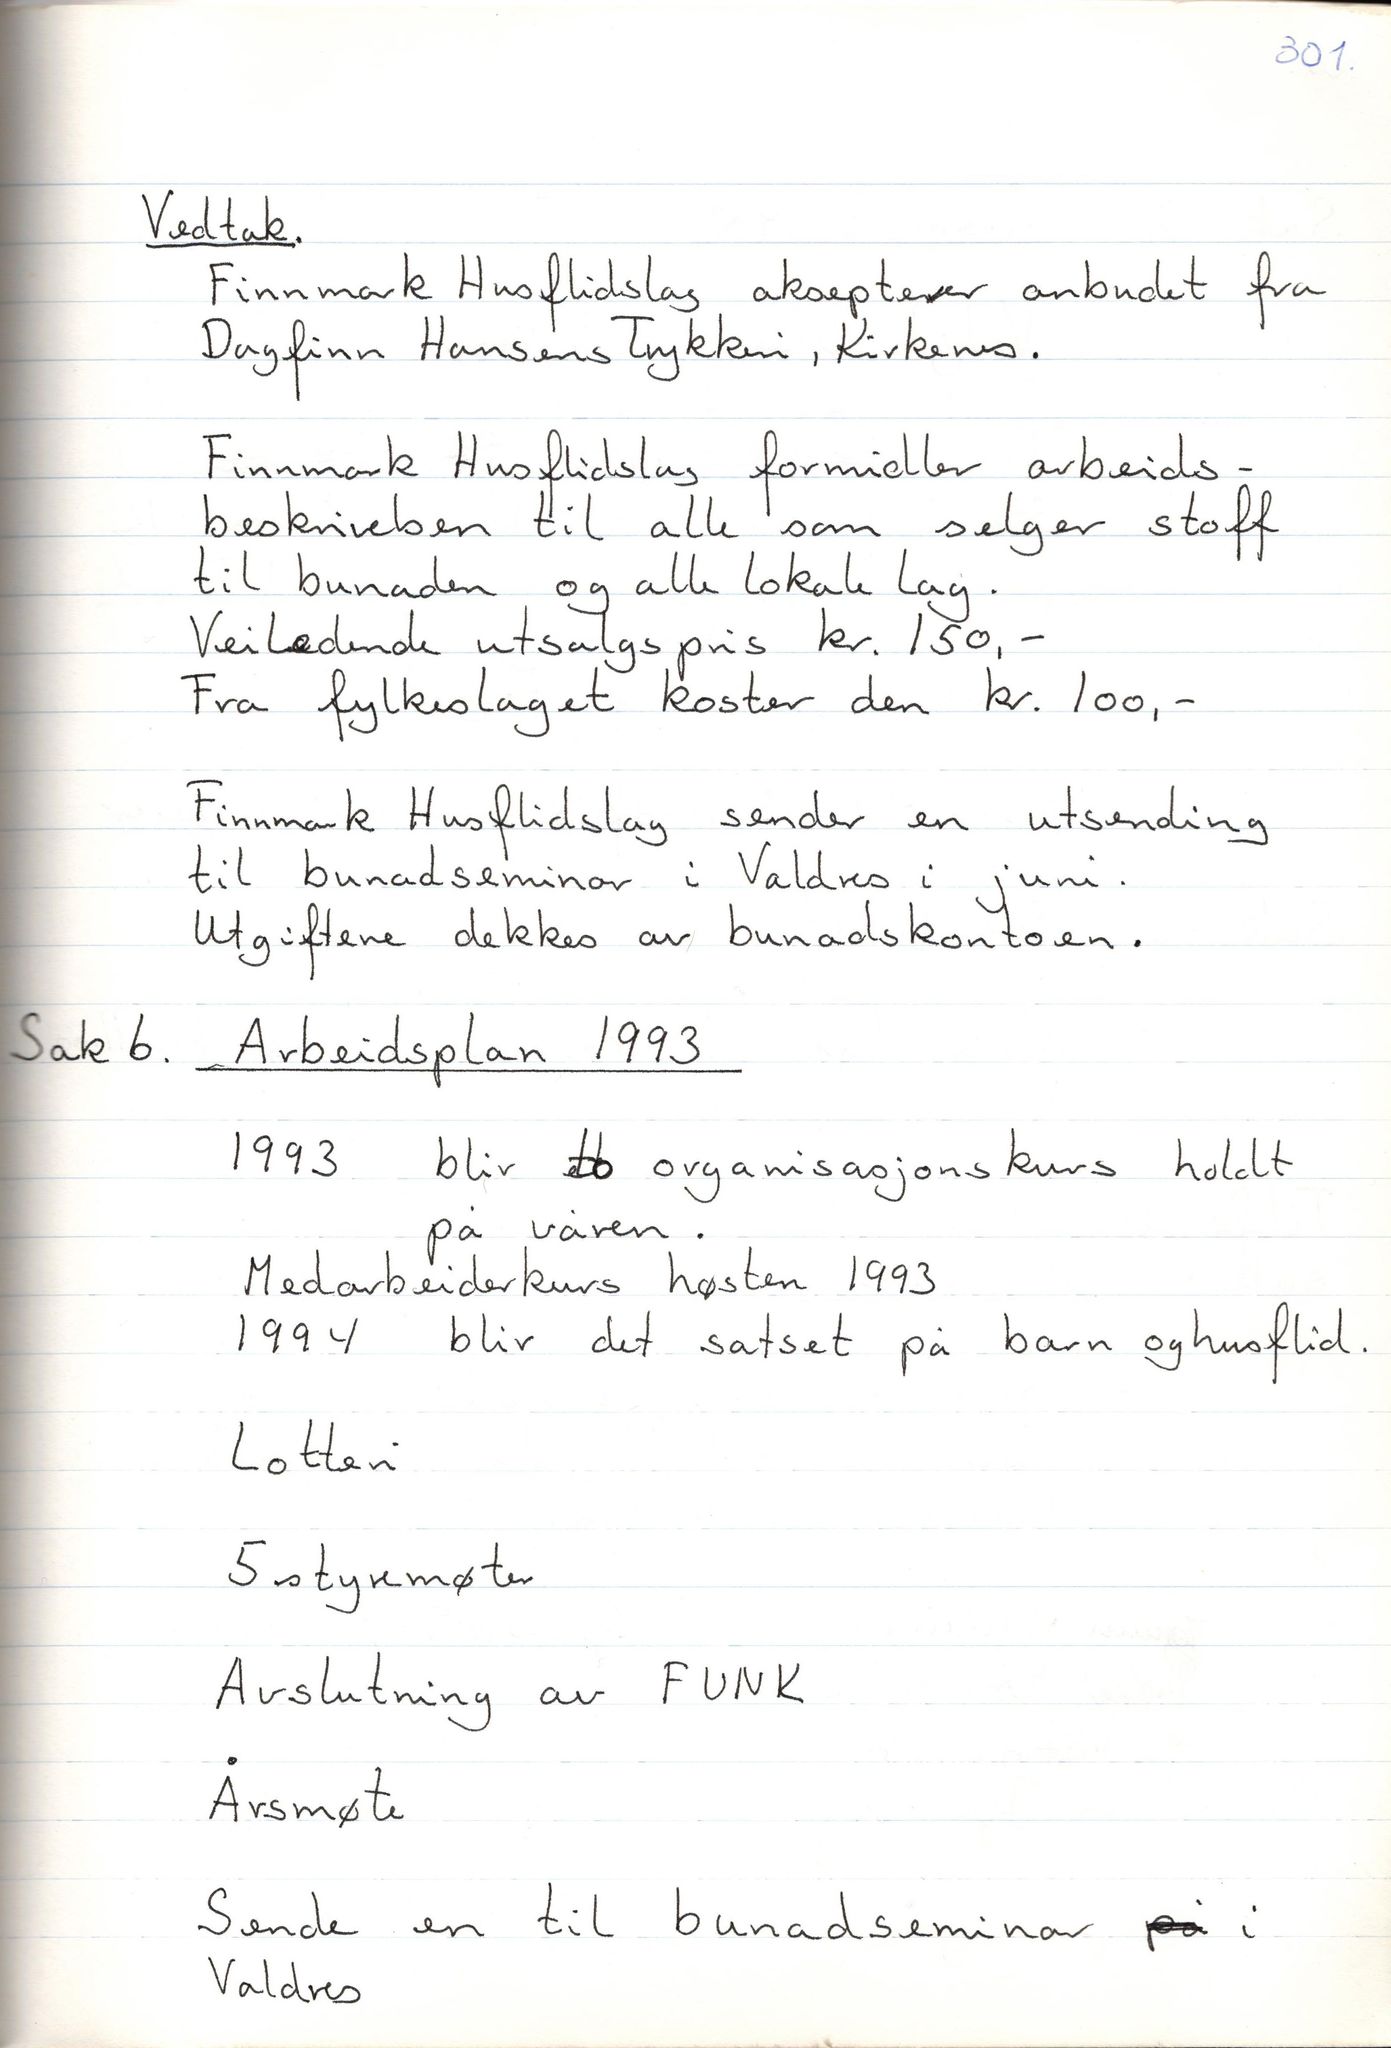 301.
Vedtak.
Finnmark Husflidslag aksepterer anbudet fra
Dagfinn Hansens Trykkeri, Kirkenes.
Finnmark Husflidslag formidler arbeids-
beskrivelsen til alle som selger stoff
til bunaden og alle lokale lag.
Veiledende utsalgspris kr. 150,-
Fra fylkeslaget koster den kr. 100,-
Finnmark Husflidslag sender en utsending
til bunadseminar i Valdres i juni.
Utgiftene dekkes av bunadskontoen.
Sak 6. Arbeidsplan 1993
1993 blir to organisasjonskurs holdt
på våren.
Medarbeiderkurs høsten 1993
1994 blir det satset på barn og husflid.
Lotteri
5 styremøter
Avslutning av FUNK
Årsmøte
Sende en til bunadseminar på i
Valdres